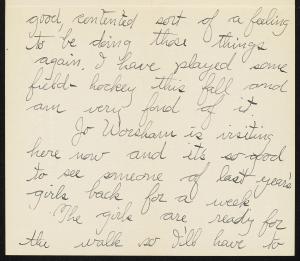 good, contented sort of a feeling
to be doing those things
again. I have played some
field-hockey this fall and
am very fond of it.
Jo Worsham is visiting
here now and its so good
to see someone of last year's
girls back for a week.
The girls are ready for
the walk so I'll have to